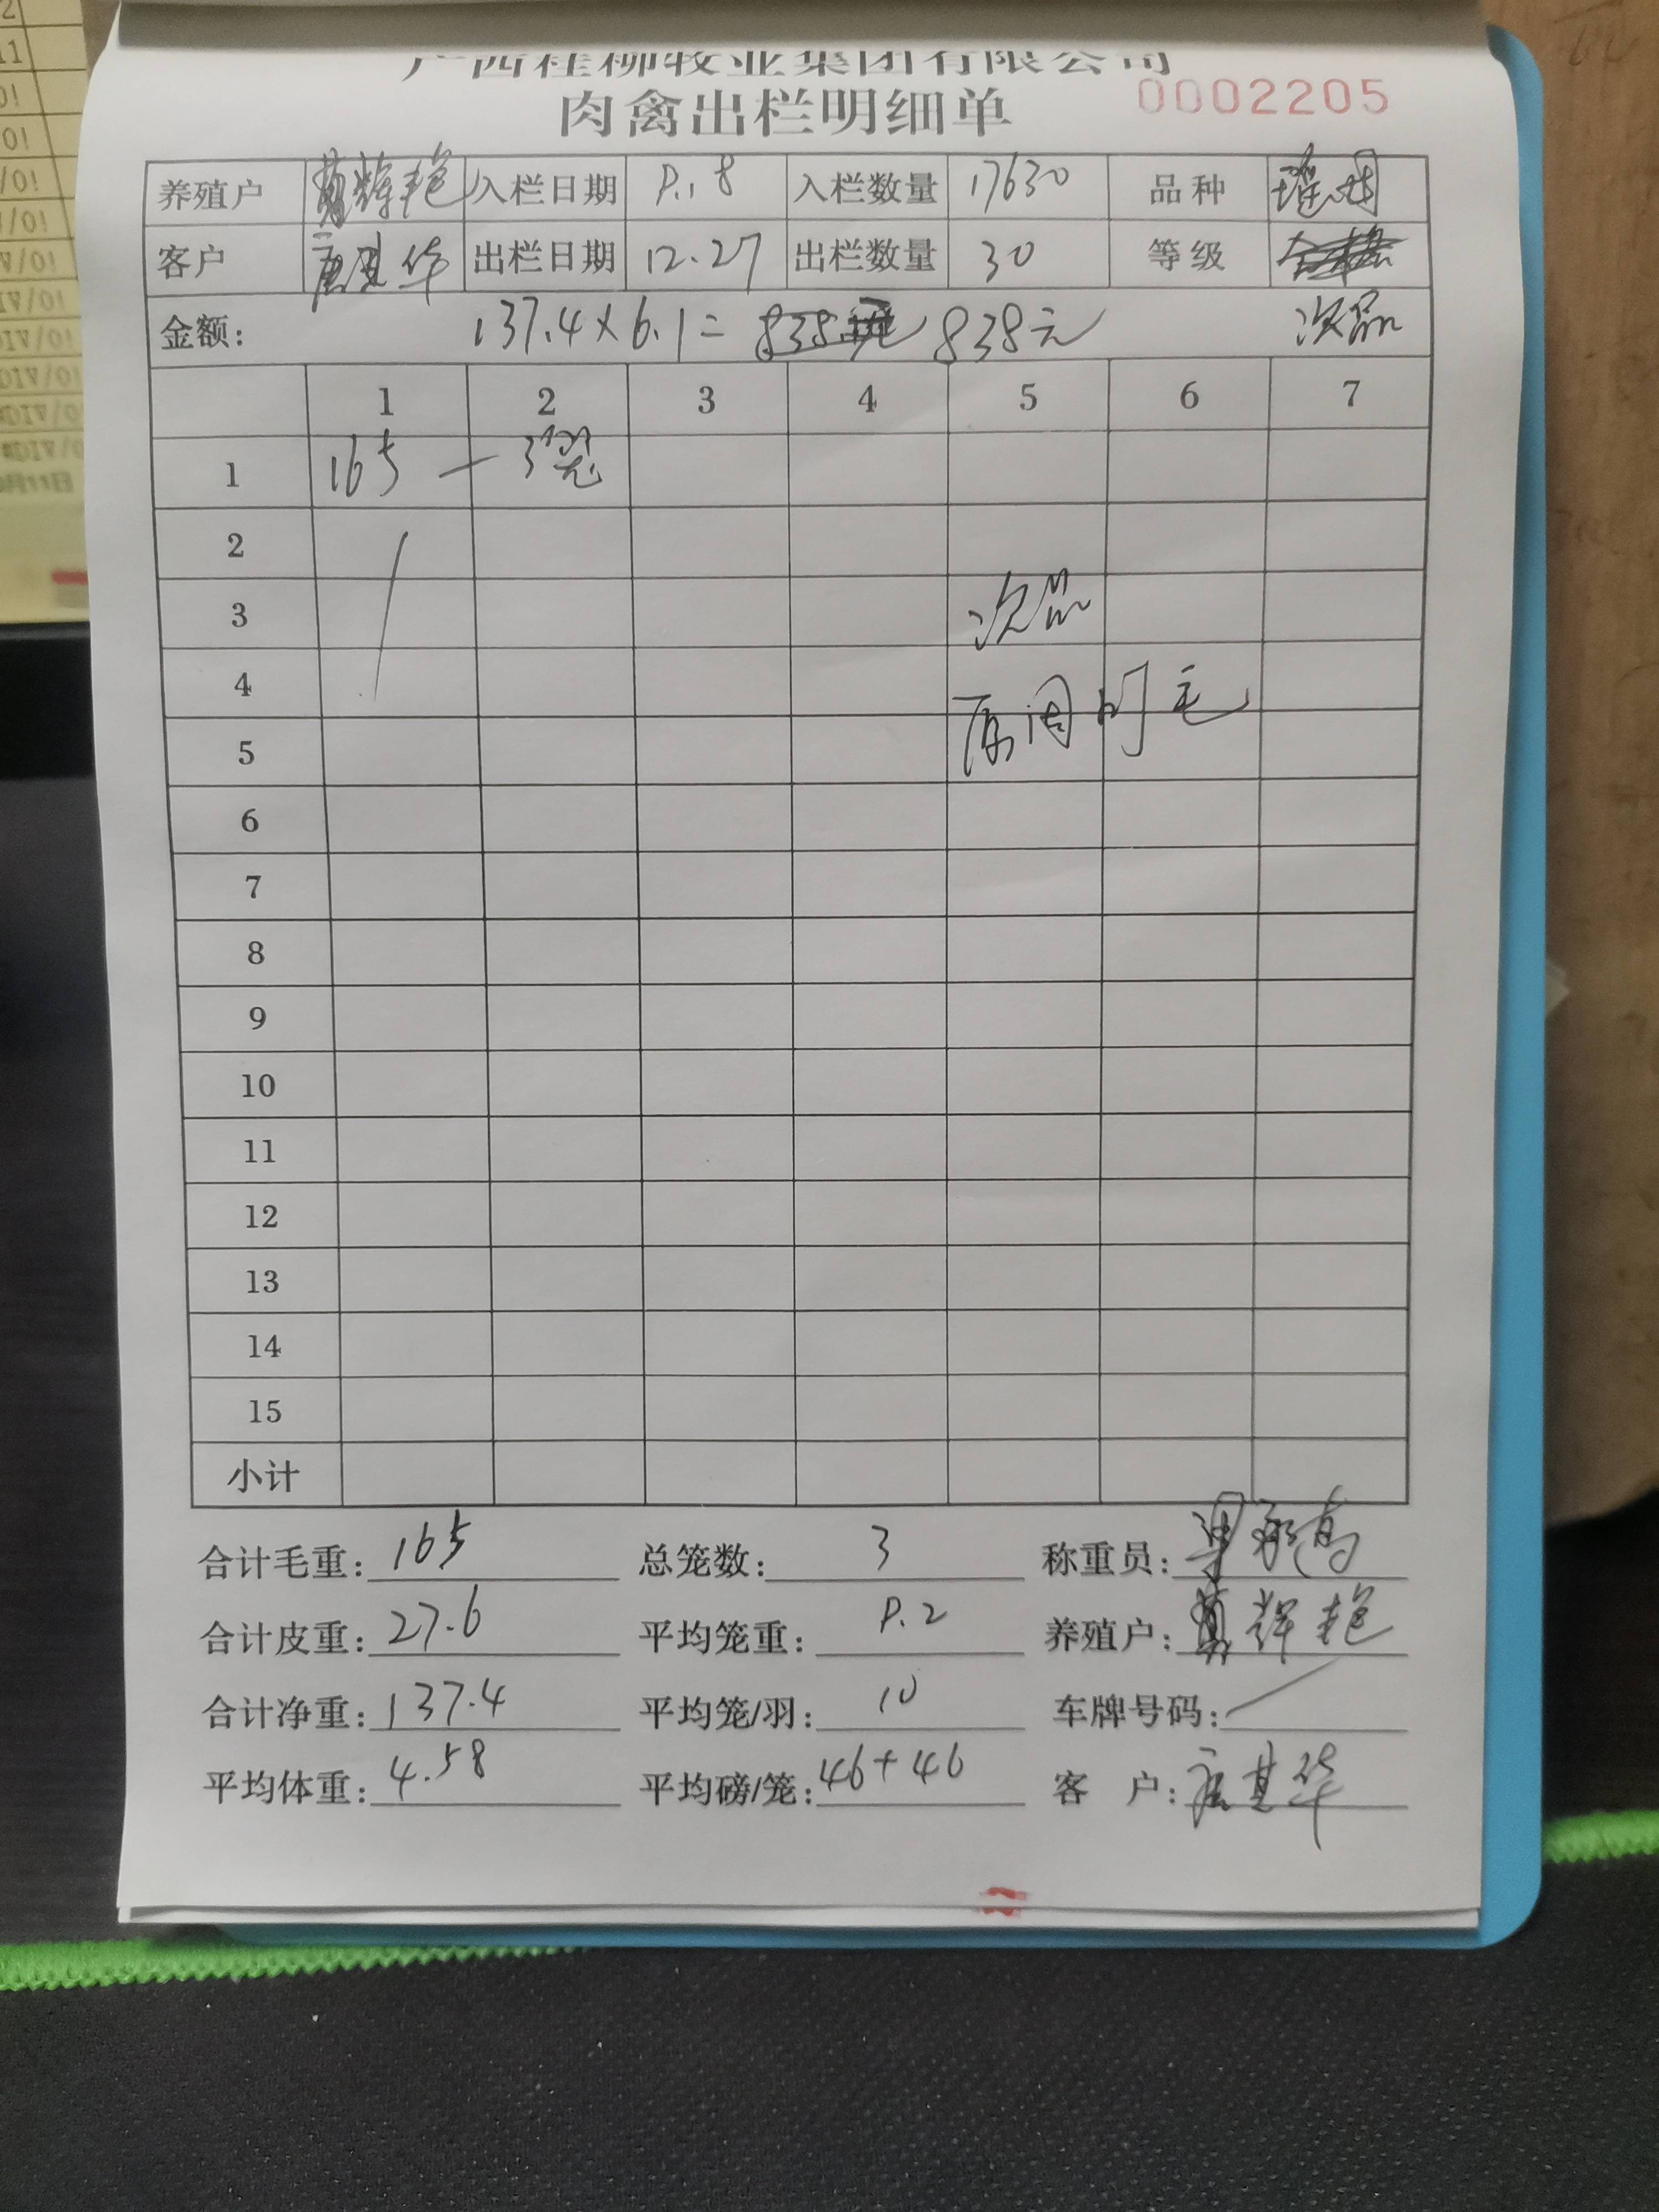 广西桂柳牧业集团有限公司
肉禽出栏明细单 0002205
养殖户 辉艳 入栏日期 9.18 入栏数量 17630 品种 瑶
客户 唐基华 出栏日期 12.27 出栏数量 30 等级
金额: 137.4×6.1= 838元 次品
1 2 3 4 5 6 7
1 165 — 3笼
2
3 次品
4
原因 毛
5
6
7
8
9
10
11
12
13
14
15
小计
合计毛重: 165 总笼数: 3 称重员:
合计皮重: 27.6 平均笼重: 9.2 养殖户: 辉艳
合计净重: 137.4 平均笼/羽: 10 车牌号码:
平均体重: 4.58 平均磅/笼: 46+46 客 户: 唐基华
2
11
0!
/0!
/0!
V/0!
IV/0!
DIV/0!
DIV/0!
#DIV/0
#DIV/0